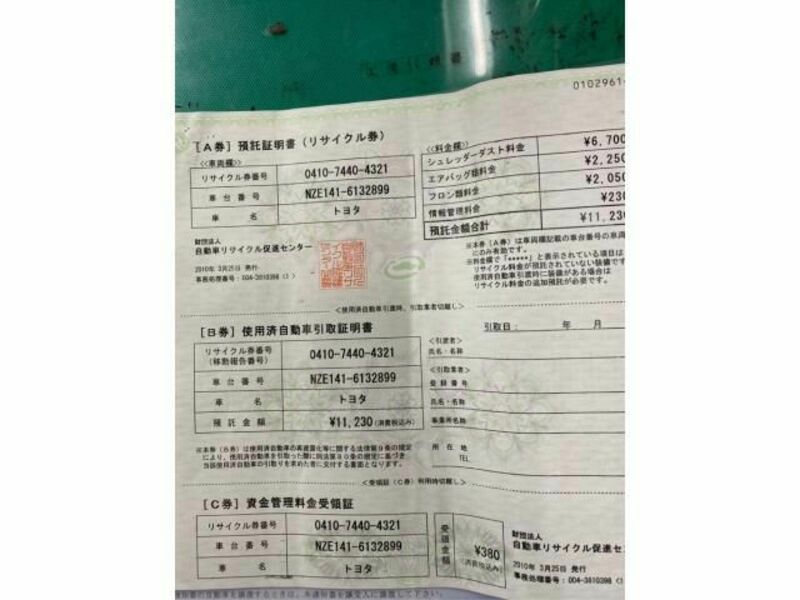 0102961
[A券] 預託証明書 (リサイクル券)
<<車両欄>>
リサイクル券番号 0410-7440-4321
車台番号 NZE141-6132899
車名 トヨタ
<<料金欄>>
シュレッダーダスト料金 ¥6,700
エアバッグ類料金 ¥2,250
フロン類料金 ¥2,050
情報管理料金 ¥230
預託金額合計 ¥11,230
財団法人
自動車リサイクル促進センター
2010年 3月25日 発行
事務処理番号: 004-3810398 (1 )
※本券(A券)は車両欄記載の車台番号の車両
にのみ有効です。
※料金欄で「*****」と表示されている項目は
リサイクル料金が預託されていない装備です
使用済自動車引渡時に装備がある場合は
リサイクル料金の追加預託が必要です。
<使用済自動車引渡時、引取業者切離し>
[B券] 使用済自動車引取証明書
引取日: 年 月
リサイクル券番号
(移動報告番号) 0410-7440-4321
車台番号 NZE141-6132899
車名 トヨタ
預託金額 ¥11,230 (消費税込み)
<引渡者>
氏名・名称
<引取業者>
登録番号
氏名・名称
事業所名称
所在地
TEL
※本券(B券)は使用済自動車の再資源化等に関する法律第9条の規定
により、使用済自動車を引取った際に同法第80条の規定に基づき
当該使用済自動車の引取りを求めた者に交付する書面となります。
<受領証(C券)利用時切離し>
[C券] 資金管理料金受領証
リサイクル券番号 0410-7440-4321
車台番号 NZE141-6132899
車名 トヨタ
受領金額 ¥380
(消費税込み)
財団法人
自動車リサイクル促進セン
2010年 3月25日 発行
事務処理番号: 004-3810398 (1